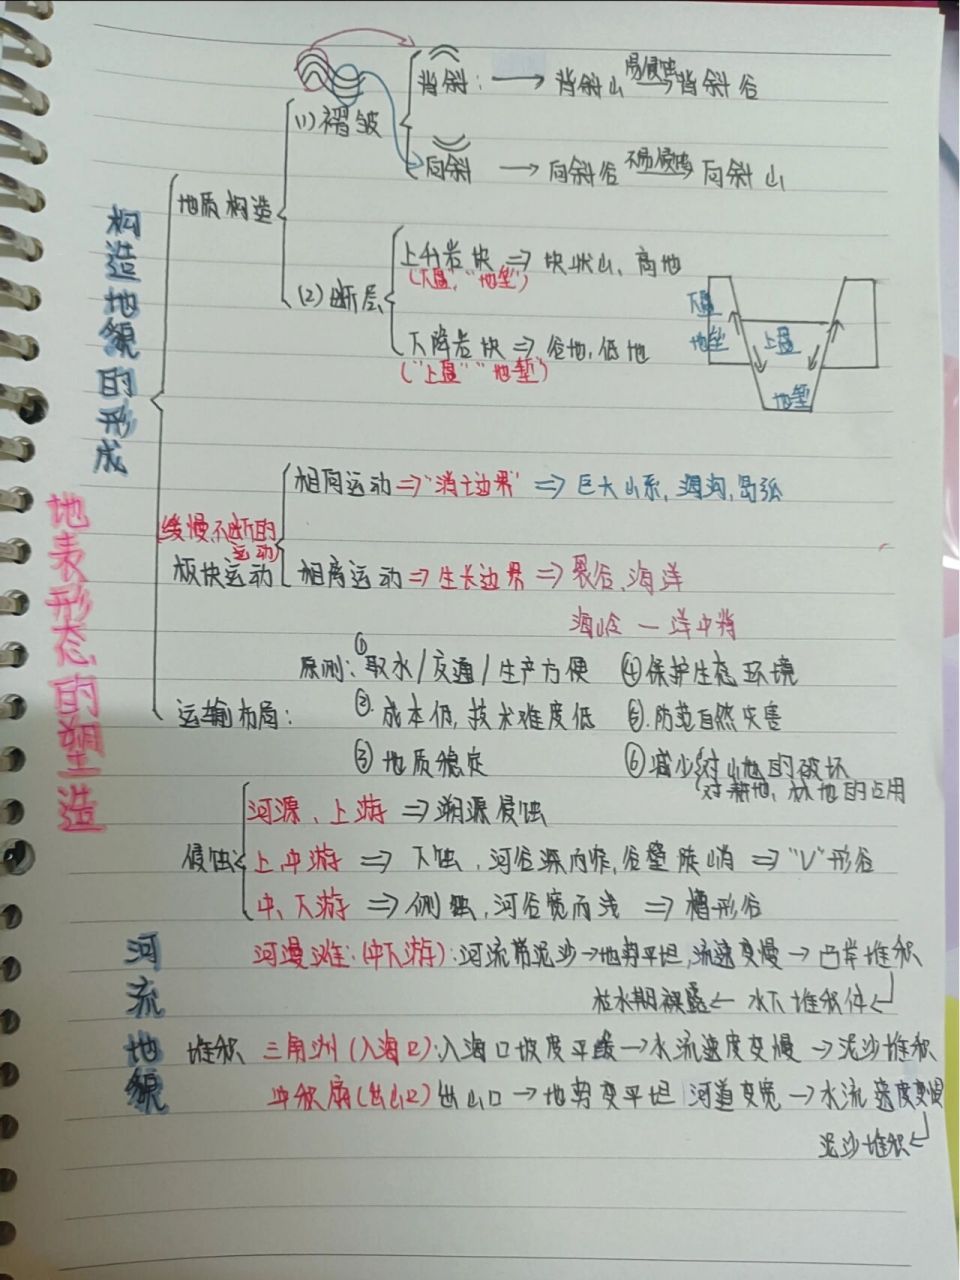 地表形态的塑造
构造地貌的形成
地质构造
(1)褶皱
背斜: → 背斜山 易侵蚀→ 背斜谷
向斜 → 向斜谷 不易侵蚀→ 向斜山
(2)断层
上升岩块 ⇒ 块状山、高地
(下盘", "地垒")
下降岩块 ⇒ 谷地, 低地
("上盘" "地堑")
下盘
地垒
上盘
地堑
缓慢不断的
运动
板块运动
相向运动 ⇒ "消亡边界" ⇒ 巨大山系, 海沟, 岛弧
相离运动 ⇒ 生长边界 ⇒ 裂谷、海洋
海岭 — 洋中脊
运输布局:
原则: ①取水/交通/生产方便 ④保护生态环境
②. 成本低, 技术难度低 ⑤. 防范自然灾害
③ 地质稳定 ⑥减少对山地的破坏
对耕地、林地的占用
河流地貌
侵蚀
河源、上游 ⇒ 溯源侵蚀
上、中游 ⇒ 下蚀, 河谷深而窄, 谷壁陡峭 ⇒ "V"形谷
中、下游 ⇒ 侧蚀, 河谷宽而浅 ⇒ 槽形谷
堆积
河漫滩: (中下游): 河流带泥沙→地势平坦, 流速变慢 → 凸岸堆积
枯水期裸露 ← 水下堆积体 ←
三角洲(入海口): 入海口坡度平缓→水流速度变慢 → 泥沙堆积
冲积扇(出山口) 出山口 → 地势变平坦 河道变宽 → 水流速度变慢
泥沙堆积 ←